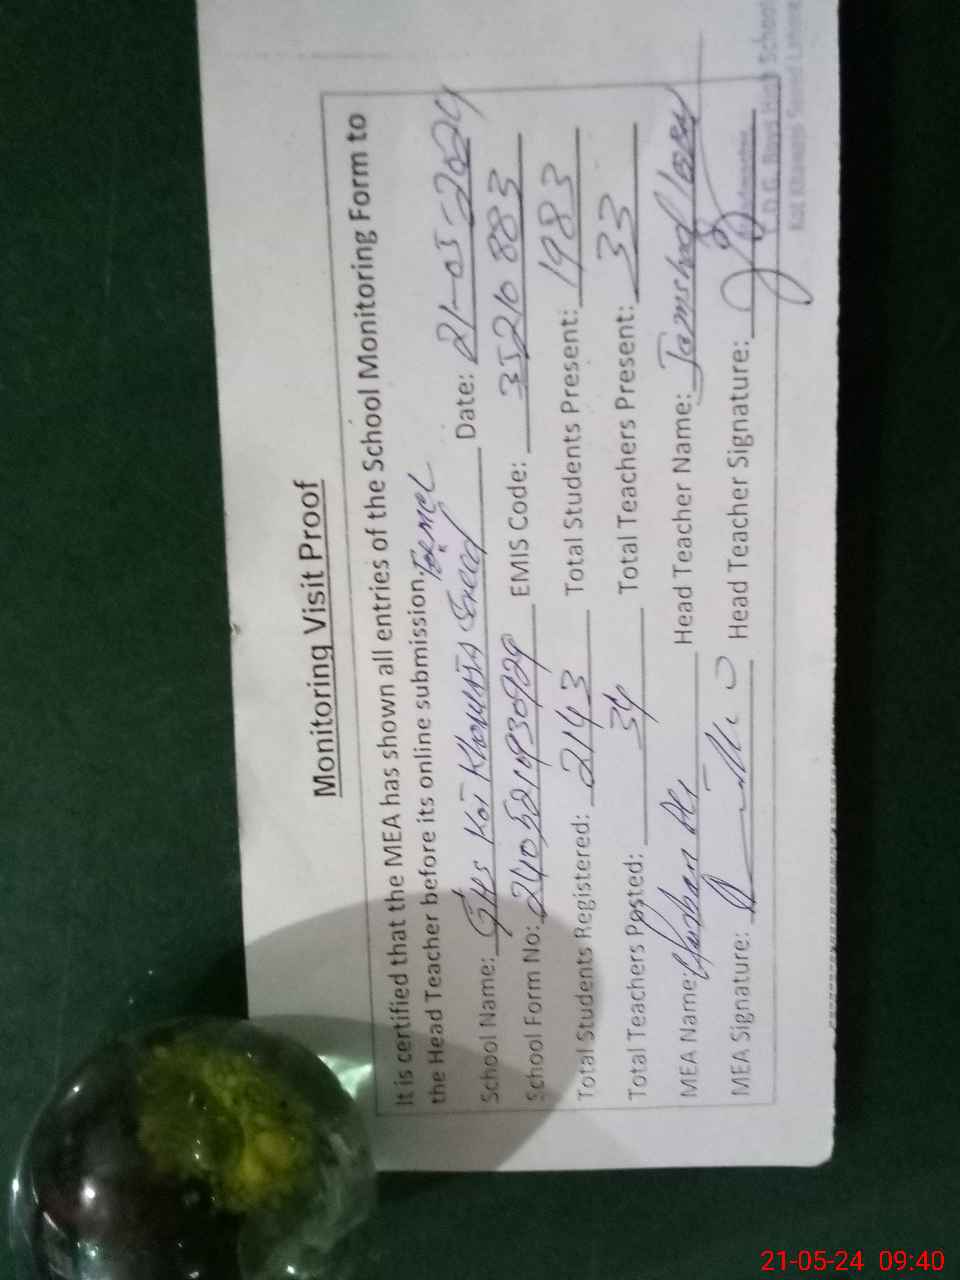 Monitoring Visit Proof
It is certified that the MEA has shown all entries of the School Monitoring Form to
the Head Teacher before its online submission.
School Name: GHS Kot Khamisa Date: 21-05-2024
School Form No: EMIS Code: 35210883
Total Students Registered: 2143 Total Students Present: 1983
Total Teachers Posted: 34 Total Teachers Present: 33
MEA Name: Ali Head Teacher Name: Jamshed
MEA Signature: Head Teacher Signature:
21-05-24 09:40